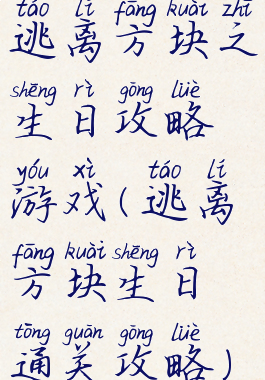 táo lí fāng kuài zhī
逃离方块之
shēng rì gōng lüè
生日攻略
yóu xì táo lí
游戏(逃离
fāng kuài shēng rì
方块生日
tōng guān gōng lüè
通关攻略)